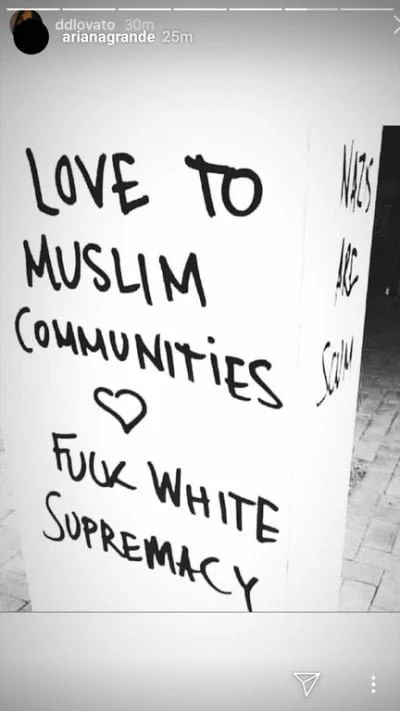 ddlovato 30m
arianagrande 25m
LOVE TO
MUSLIM
COMMUNITIES
FUCK WHITE
SUPREMACY
NAZIS
ARE
SCUM